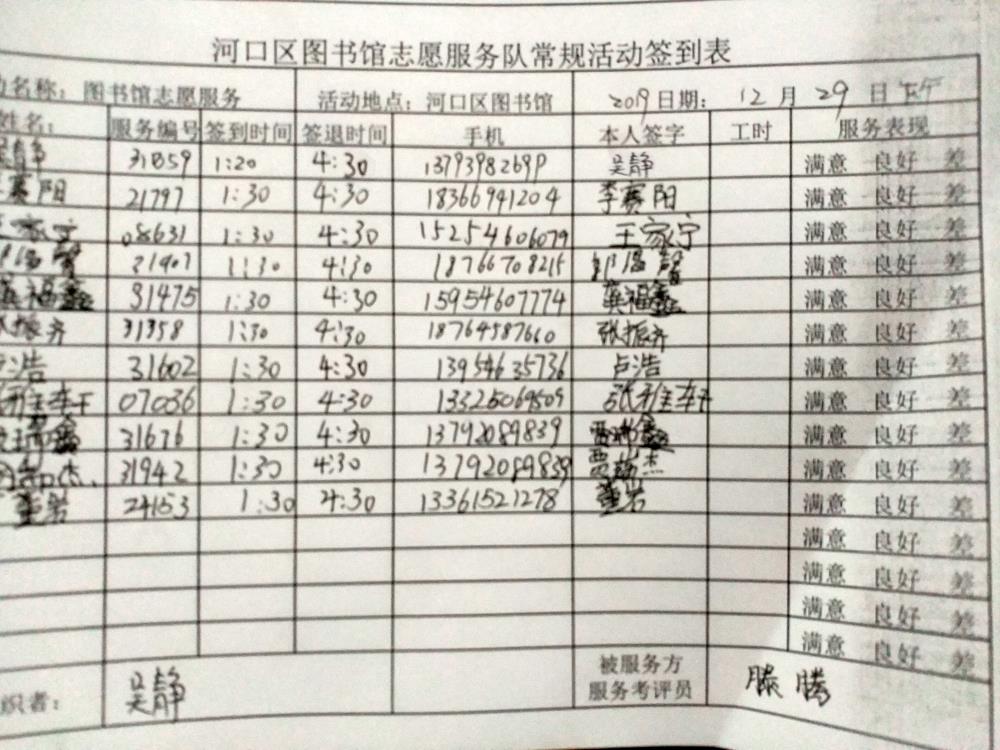 河口区图书馆志愿服务队常规活动签到表
动名称：图书馆志愿服务 活动地点：河口区图书馆 2019日期：12月29日下午
姓名： 服务编号 签到时间 签退时间 手机 本人签字 工时 服务表现
吴静 1:20 4:30 吴静 满意 良好 差
李赛阳 21797 1:30 4:30 18366941204 李赛阳 满意 良好 差
王家宁 08631 1:30 4:30 15254606079 王家宁 满意 良好 差
1:30 4:30 18766708215 满意 良好 差
龚福鑫 31475 1:30 4:30 15954607774 龚福鑫 满意 良好 差
张振齐 31358 1:30 4:30 18764587660 张振齐 满意 良好 差
卢浩 31602 1:30 4:30 13954635736 卢浩 满意 良好 差
张雅轩 07036 1:30 4:30 13325069509 张雅轩 满意 良好 差
31676 1:30 4:30 13792089839 贾瑞鑫 满意 良好 差
31942 1:30 4:30 13792089839 贾瑞杰 满意 良好 差
董岩 24153 1:30 4:30 13361521278 董岩 满意 良好 差
满意 良好 差
满意 良好 差
满意 良好 差
满意 良好 差
织者： 吴静 被服务方 滕腾
服务考评员